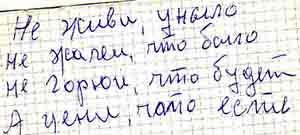 Не живи, уныло
не жалей, что было
не горюй, что будет
А цени, что то есть